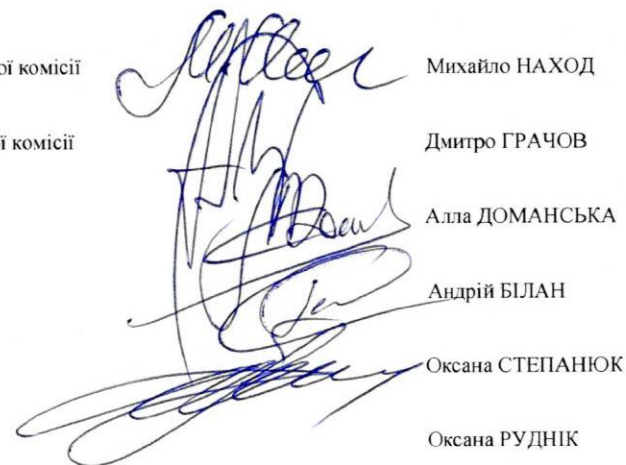 ої комісії Михайло НАХОД
ї комісії Дмитро ГРАЧОВ
Алла ДОМАНСЬКА
Андрій БІЛАН
Оксана СТЕПАНЮК
Оксана РУДНІК